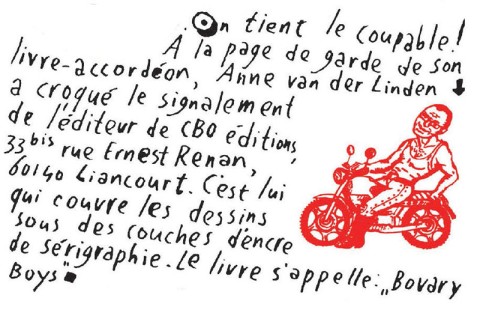 On tient le coupable!
À la page de garde de son
livre-accordéon, Anne van der Linden
a croqué le signalement
de l'éditeur de CBO éditions,
33bis rue Ernest Renan,
60140 Liancourt. C'est lui
qui couvre les dessins
sous des couches d'encre
de sérigraphie. Le livre s'appelle: „Bovary
Boys"